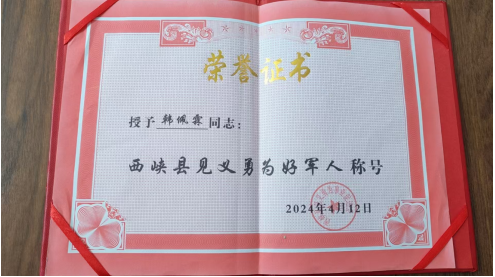 荣誉证书
授予韩佩霖同志：
西峡县见义勇为好军人称号
2024年4月12日